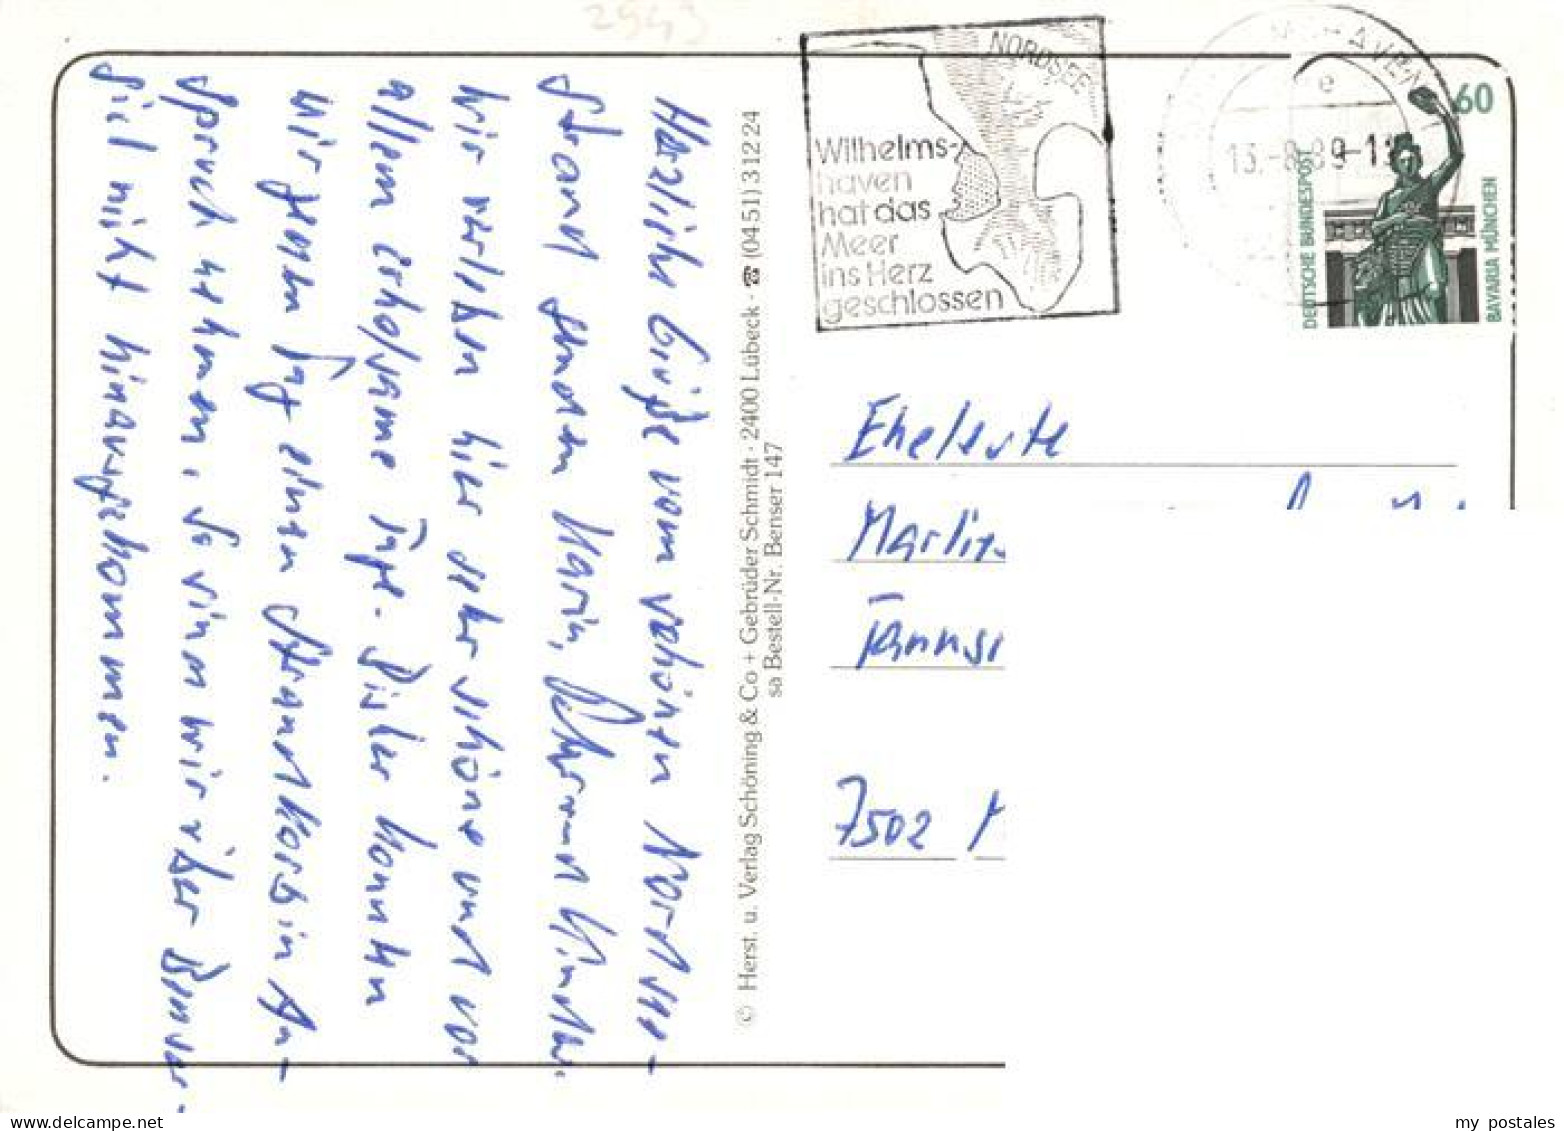 2943
Herzliche Grüße vom schönen Nordsee-
strand senden Karin, und Kinder.
Wir verleben hier sehr schöne und vor
allem erholsame Tage. Bisher konnten
wir jeden Tag einen Strandkorb in An-
spruch nehmen, so sind wir über Benser-
siel nicht hinausgekommen.
© Herst. u. Verlag Schöning & Co + Gebrüder Schmidt · 2400 Lübeck · ☎ (0451) 31224
sa Bestell-Nr. Benser 147
NORDSEE
Wilhelms-
haven
hat das
Meer
ins Herz
geschlossen
HAVEN
e
13.-8.89-1
60
DEUTSCHE BUNDESPOST
BAVARIA MÜNCHEN
Eheleute
Martin
7502
my postales